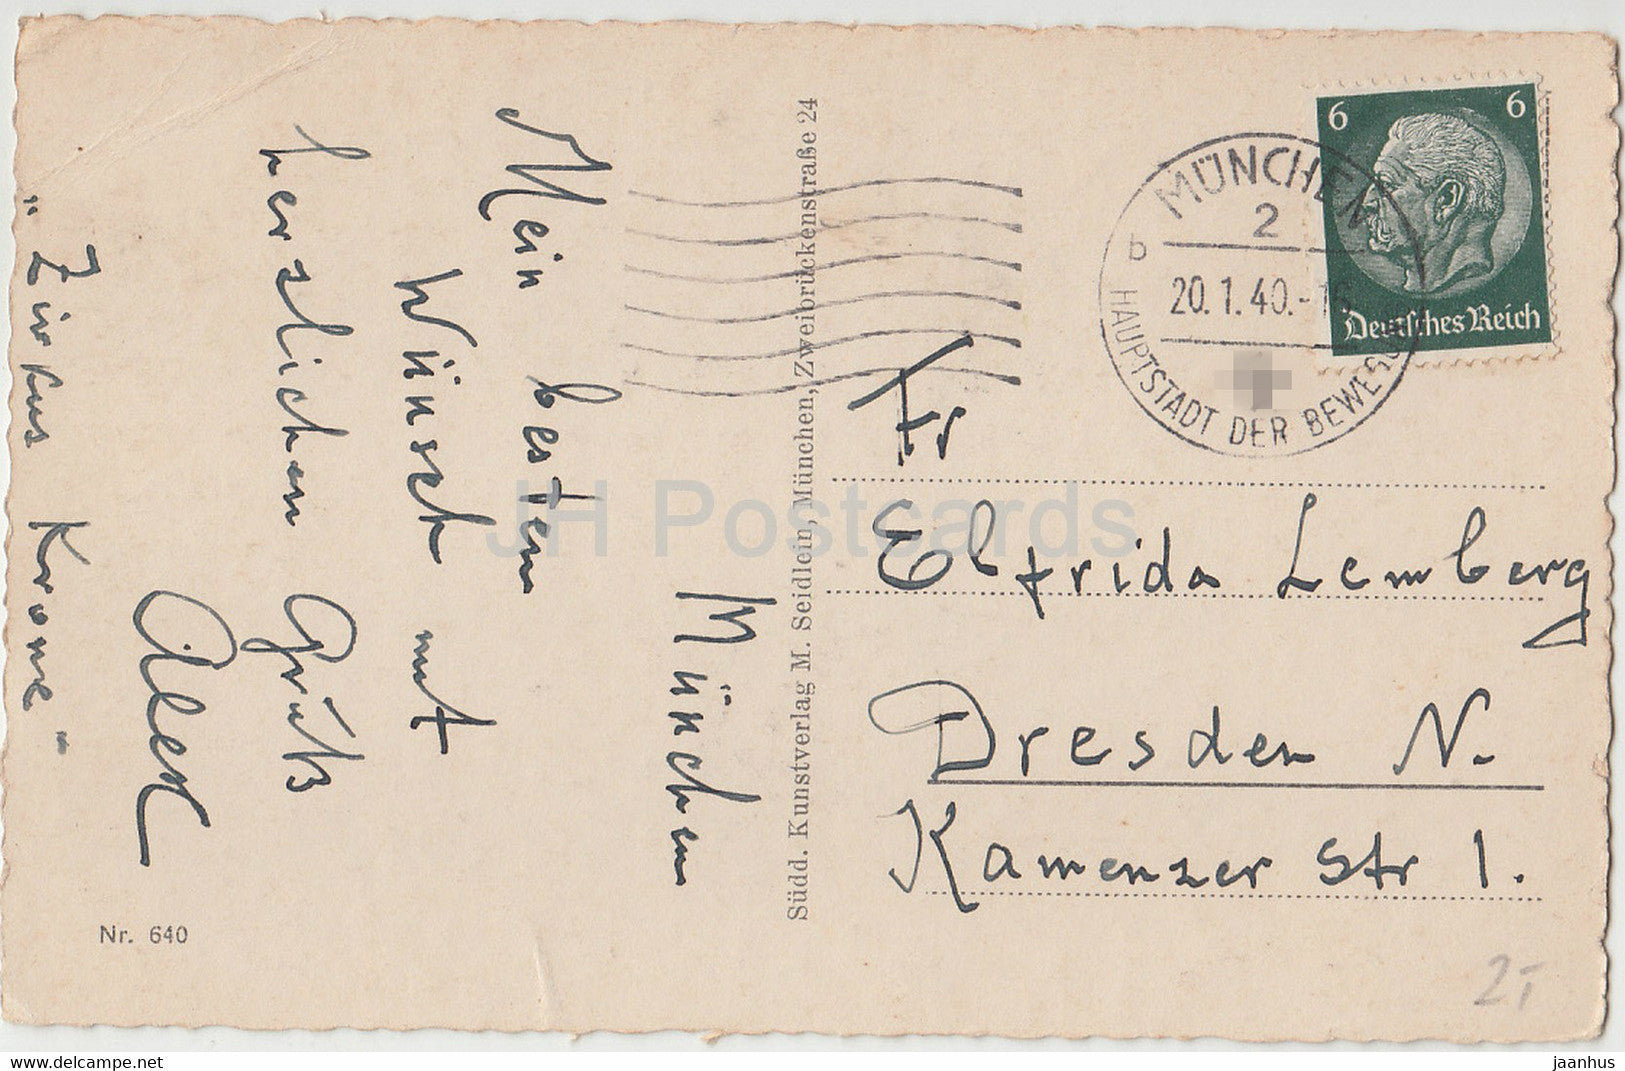 München
Mein besten
Wünsch mit
herzlichen Grüß
Alex
"Zirkus Krone"
Nr. 640
Südd. Kunstverlag M. Seidlein, München, Zweibrückenstraße 24
MÜNCHEN
2
b
20.1.40.-
HAUPTSTADT DER BEWEGU
6 6
Deutsches Reich
Fr
Elfrida Lemberg
Dresden N.
Kamenzer Str 1.
JH Postcards
delcampe.net
jaanhus